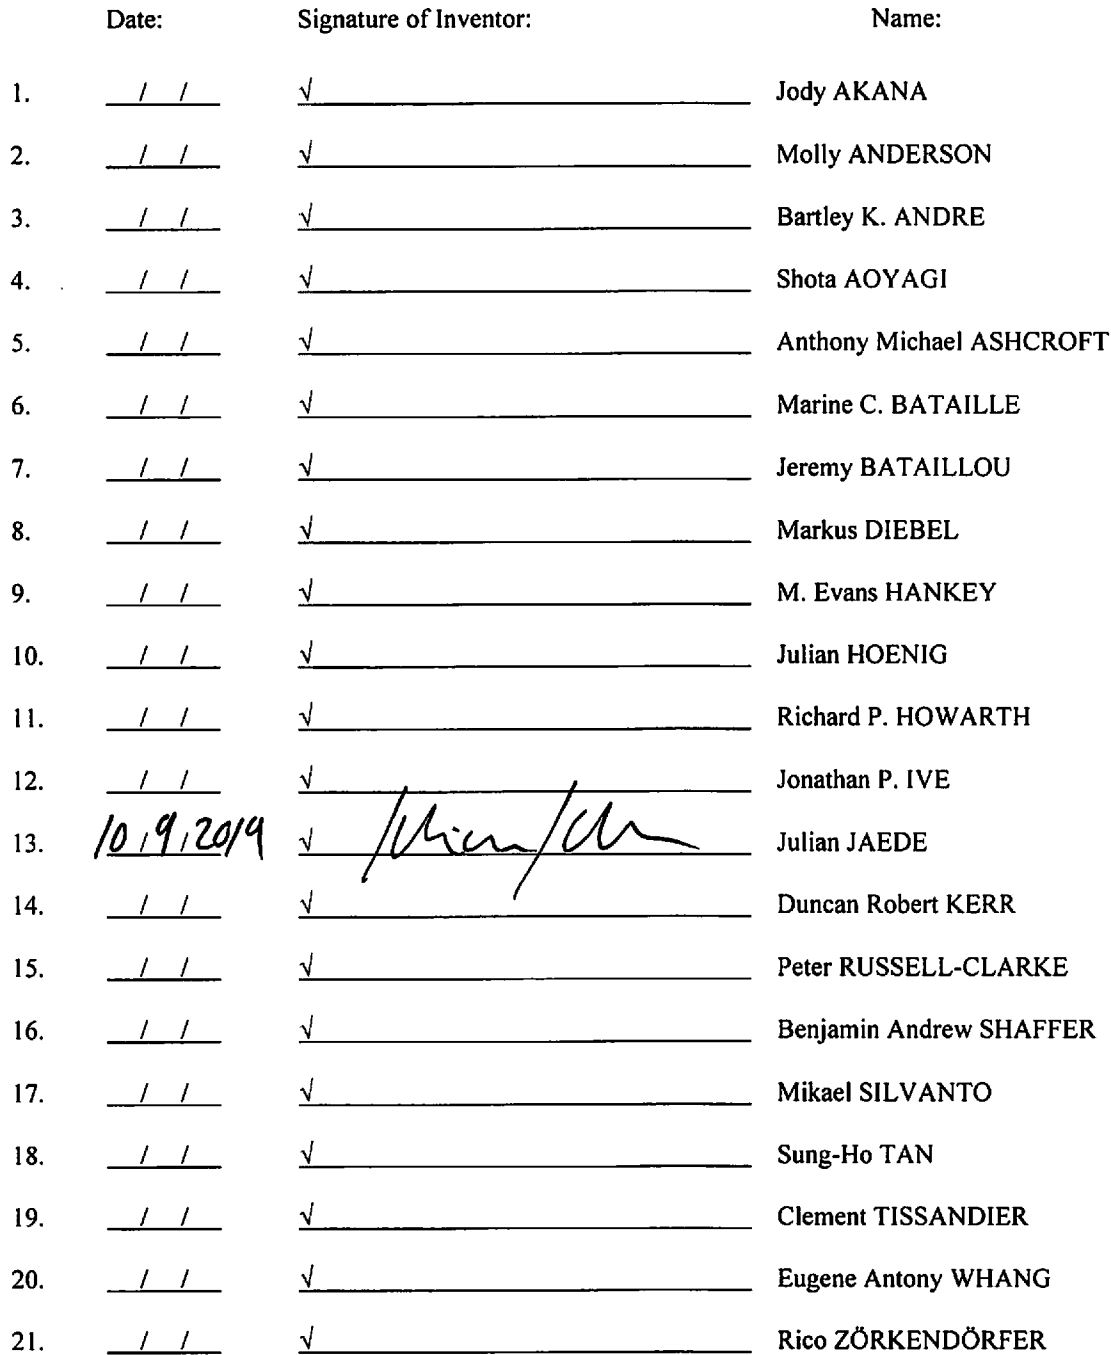 Date: Signature of Inventor: Name:
1. / / √ Jody AKANA
2. / / √ Molly ANDERSON
3. / / √ Bartley K. ANDRE
4. / / √ Shota AOYAGI
5. / / √ Anthony Michael ASHCROFT
6. / / √ Marine C. BATAILLE
7. / / √ Jeremy BATAILLOU
8. / / √ Markus DIEBEL
9. / / √ M. Evans HANKEY
10. / / √ Julian HOENIG
11. / / √ Richard P. HOWARTH
12. / / √ Jonathan P. IVE
13. 10/9/2019 √ Julian JAEDE
14. / / √ Duncan Robert KERR
15. / / √ Peter RUSSELL-CLARKE
16. / / √ Benjamin Andrew SHAFFER
17. / / √ Mikael SILVANTO
18. / / √ Sung-Ho TAN
19. / / √ Clement TISSANDIER
20. / / √ Eugene Antony WHANG
21. / / √ Rico ZÖRKENDÖRFER